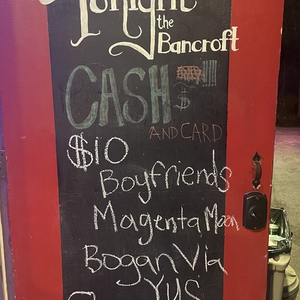 Tonight
the
Bancroft
CASH
$
AND CARD
$10
Boyfriends
Magenta Moon
Bogan Via
YUS